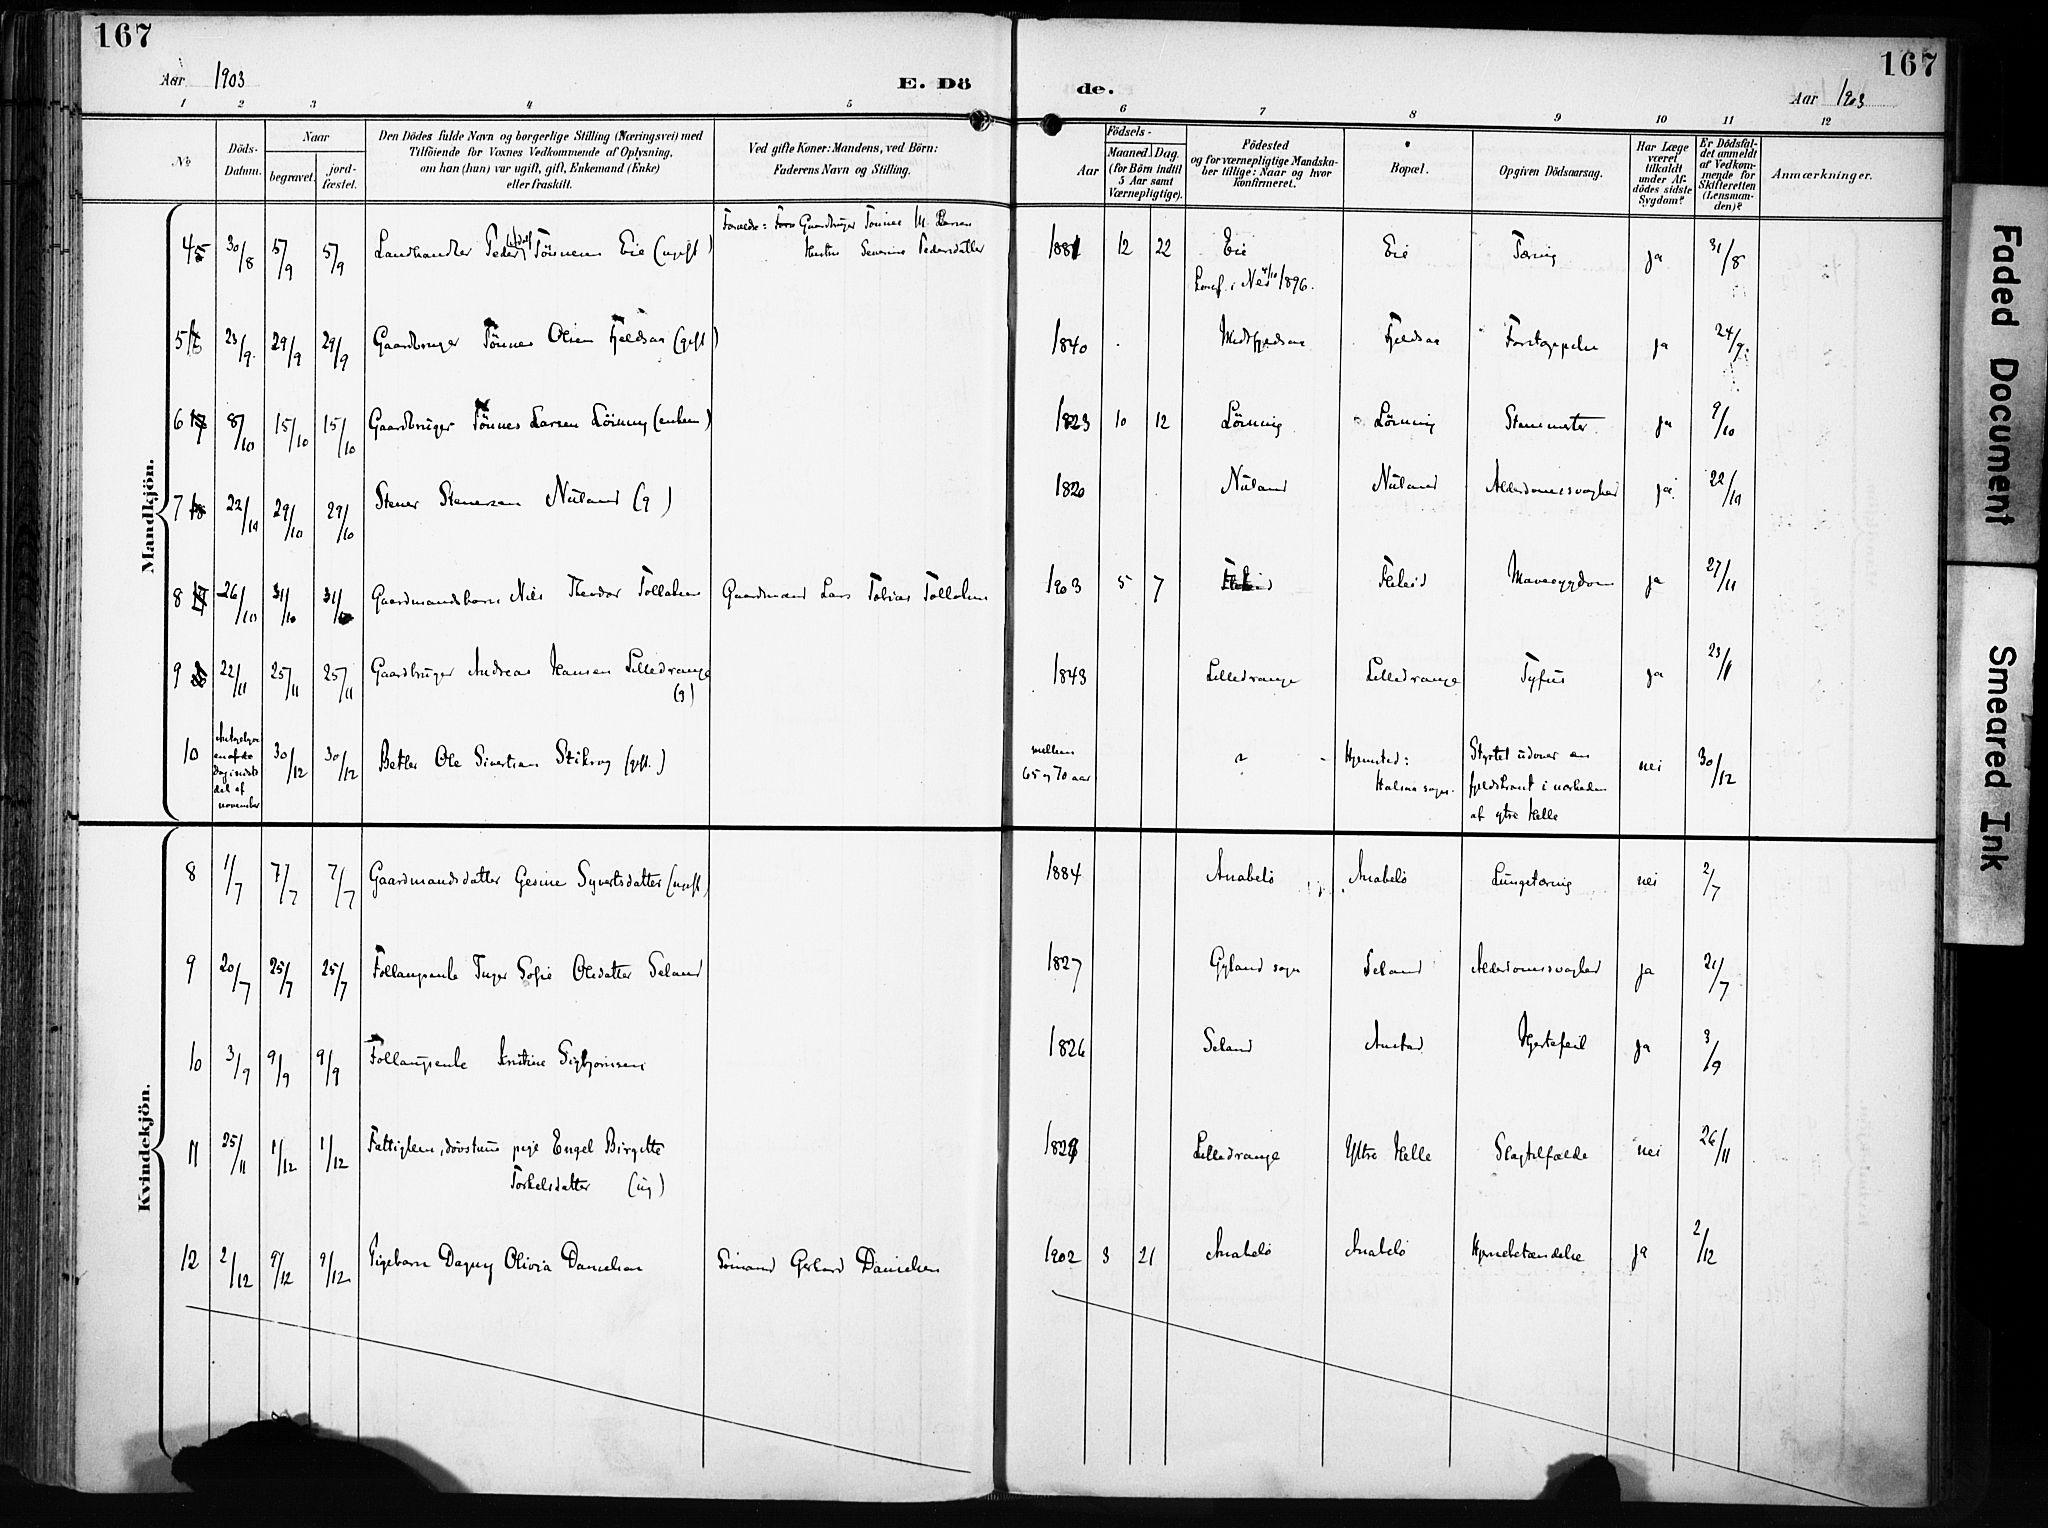 167
167
Aar 1903
E. Dö
de.
Aar 1903
1 2 3 4 5 6 7 8 9 10 11 12
No
Döds-
Datum.
Naar
begravet.
jord-
fæstet.
Den Dödes fulde Navn og borgerlige Stilling (Næringsvei) med
Tilföiende for Voxnes Vedkommende af Oplysning,
om han (hun) var ugift, gift, Enkemand (Enke)
eller fraskilt.
Ved gifte Koner: Mandens, ved Börn:
Faderens Navn og Stilling.
Födsels-
Aar
Maaned.
Dag.
(for Börn indtil
5 Aar samt
Værnepligtige).
Födested
og for værnepligtige Mandska-
ber tillige: Naar og hvor
konfirmeret.
Bopæl.
Opgiven Dödsaarsag.
Har Læge
været
tilkaldt
under Af-
dödes sidste
Sygdom?
Er Dödsfal-
det anmeldt
af Vedkom-
mende for
Skifteretten
(Lensman-
den)?
Anmærkninger.
Mandkjön.
4 30/8 5/9 5/9 Landhandler Peder Tönnesen Eie (ugift) Gaardbruger Tönnes M. Larsen
Hustru Severine Pedersdatter
1881 12 22 Eie Eie Tæring ja 31/8
Konf. i Nes 1896.
5 23/9 29/9 29/9 Gaardbruger Tönnes Olsen Fjeldsaa (gift) 1840 Midtfjeldsaa Fjeldsaa Forstoppelse ja 24/9
6 8/10 15/10 15/10 Gaardbruger Tönnes Larsen Lörning (enkem) 1823 10 12 Lörning Lörning ja 9/10
7 22/10 29/10 29/10 Stener Stenersen Nuland (g) 1820 Nuland Nuland Alderdomssvaghed ja 22/10
8 26/10 31/10 31/10 Gaardmandsbarn Nils Theodor Tollaksen Gaardmand Lars Tobias Tollaksen 1903 5 7 Flikeid Mavesygdom ja 27/11
9 22/11 25/11 25/11 Gaardbruger Andreas Hansen Lilledrange
(g)
1843 Lilledrange Lilledrange Tyfus ja 23/11
10 30/12 30/12 Betler Ole Sivertsen Stikrog (gift.)
mellem
65 og 70 aar
? Hjemsted:
Halsaa sogn.
Styrtet udover en
fjeldskrænt i nærheden
af ytre Helle
nei 30/12
november
Kvindekjön.
8 1/7 7/7 7/7 Gaardmandsdatter Gesine Syvertsdatter (ugift) 1884 Anabelö Anabelö Lungetæring nei 2/7
9 20/7 25/7 25/7 Follaugsenke Inger Sofie Olsdatter Seland 1827 Gyland sogn Seland Alderdomssvaghed ja 21/7
10 3/9 9/9 9/9 Follaugsenke Kristine Sigbjörnsen 1826 Seland Anstad Hjertefeil ja 3/9
11 25/11 1/12 1/12 Fattiglem, dövstum pige Engel Birgitte
Torkelsdatter (ug)
1828 Lilledrange Yttre Helle Slagtilfælde nei 26/11
12 2/12 9/12 9/12 Pigebarn Dagny Olivia Danielsen Sömand Gerhard Danielsen 1902 3 21 Anabelö Anabelö Hjernebetændelse ja 2/12
Faded Document
Smeared Ink